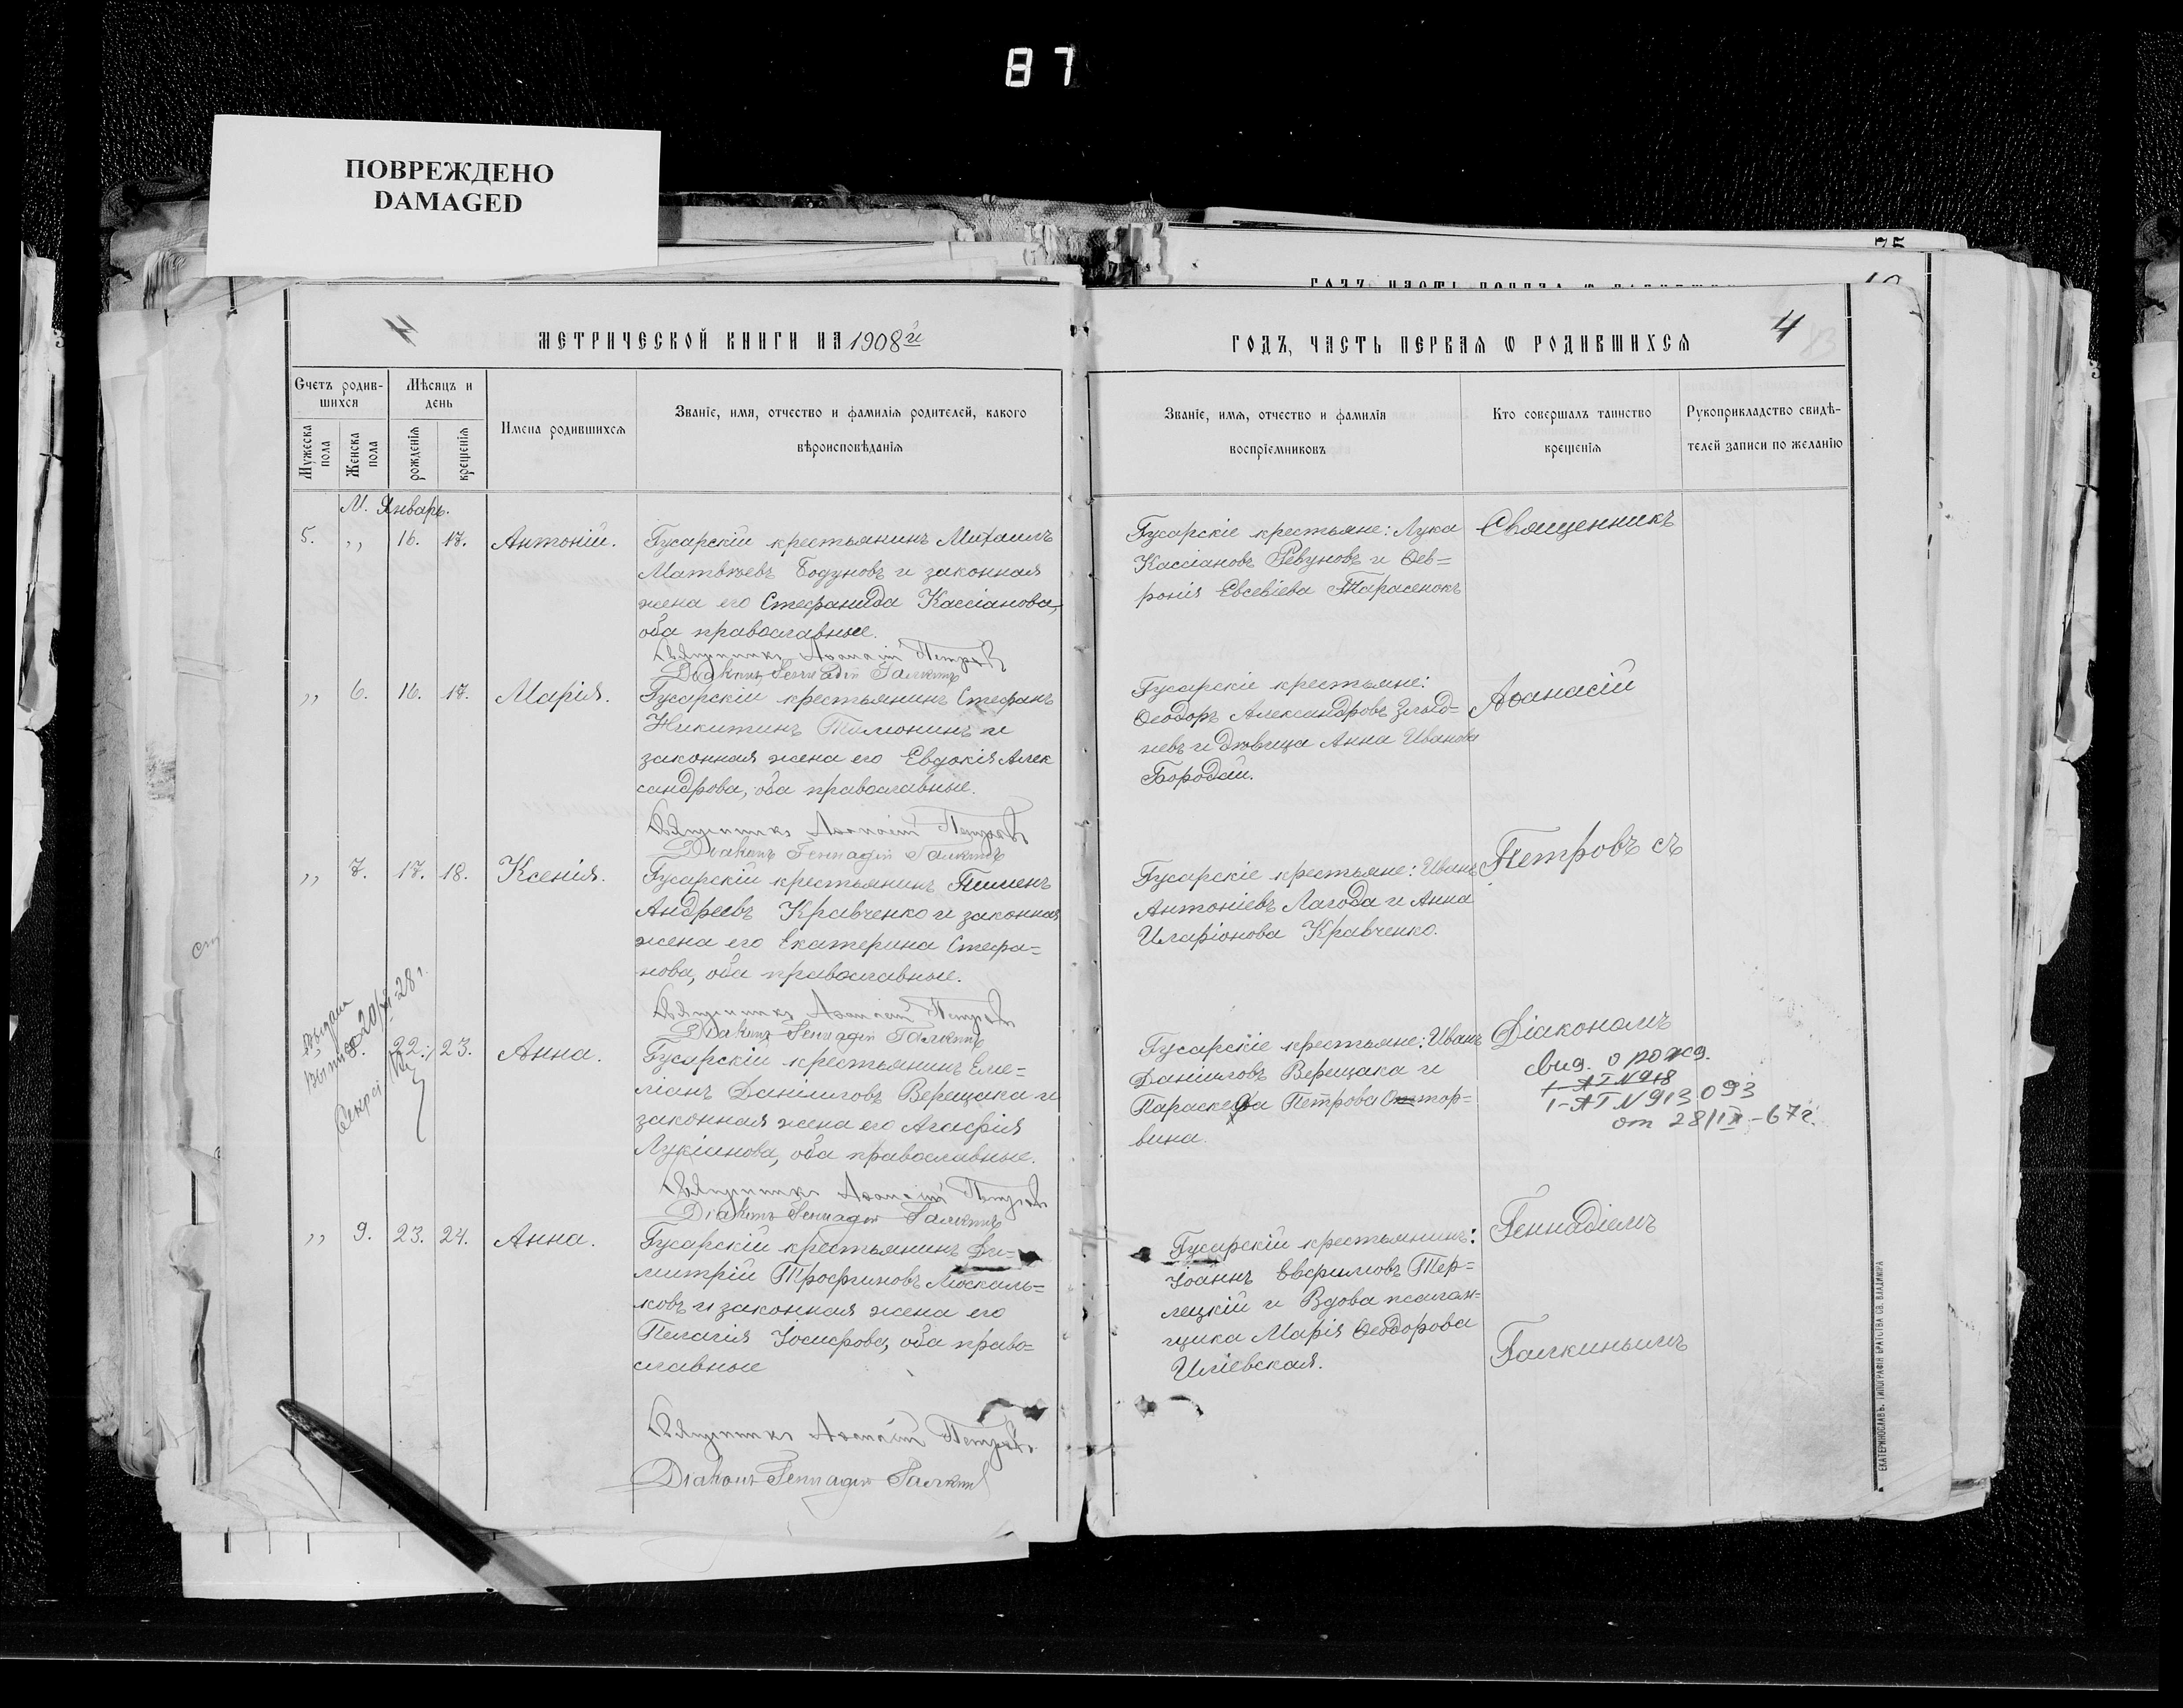 87
ПОВРЕЖДЕНО
DAMAGED
4
МЕТРИЧЕСКОЙ КНИГИ НА 1908й
Счетъ родив-
шихся
Мужеска пола
Женска пола
Мѣсяцъ и
день
рожденія
крещенія
Имена родившихся
Званіе, имя, отчество и фамилія родителей, какого
вѣроисповѣданія
М. Январь.
5. ,, 16. 17. Антоній.
Гусарскій крестьянинъ Михаилъ
Матвѣевъ Бодуновъ и законная
жена его Стефанида Кассіанова,
оба православные.
Священникъ Аѳанасій Петровъ
Діаконъ Геннадій Галкинъ
,, 6. 16. 17. Марія.
Гусарскій крестьянинъ Стефанъ
Никитинъ Тимонинъ и
законная жена его Евдокія Алек
сандрова, оба православные.
Священникъ Аѳанасій Петровъ
Діаконъ Геннадій Галкинъ
,, 7. 17. 18. Ксенія.
Гусарскій крестьянинъ Пименъ
Андреевъ Кравченко и законная
жена его Екатерина Стефа=
нова, оба православные.
Священникъ Аѳанасій Петровъ
Діаконъ Геннадій Галкинъ
Выдана
28 г.
8. 22. 23. Анна.
Гусарскій крестьянинъ Еме=
ліанъ Даніиловъ Верещака и
законная жена его Агафія
Лукіанова, оба православные.
Священникъ Аѳанасій Петровъ
Діаконъ Геннадій Галкинъ
,, 9. 23. 24. Анна.
Гусарскій крестьянинъ Ди=
митрій Трофимовъ Москаль=
ковъ и законная жена его
Пелагія Іосифова, оба право=
славные
Священникъ Аѳанасій Петровъ
Діаконъ Геннадій Галкинъ
ГОДЪ, ЧАСТЬ ПЕРВАЯ Ѡ РОДИВШИХСЯ
4
Званіе, имя, отчество и фамилія
воспріемниковъ
Кто совершалъ таинство
крещенія
Рукоприкладство свидѣ-
телей записи по желанію
Гусарскіе крестьяне: Лука
Кассіановъ Ревуновъ и Фев=
ронія Евсевіева Тарасенокъ
Гусарскіе крестьяне:
Ѳеодоръ Александровъ
и дѣвица Анна Иванова
Бородай.
Гусарскіе крестьяне: Иванъ
Антоніевъ Лагода и Анна
Иларіонова Кравченко.
Гусарскіе крестьяне: Иванъ
Даніиловъ Верещака и
Параскева Петрова
вина.
Гусарскій крестьянинъ:
Іоаннъ Евфимовъ Тер=
лецкій и Вдова
Марія Ѳеодорова
Иліевская.
Священникъ
Аѳанасій
Петровъ съ
Діакономъ
свид. о рожд.
I-АГ N 918
I-АГ N 913093
от 28/IX-67г.
Геннадіемъ
Галкинымъ
ЕКАТЕРИНОСЛАВЪ. ТИПОГРАФІЯ БРАТСТВА СВ. ВЛАДИМІРА